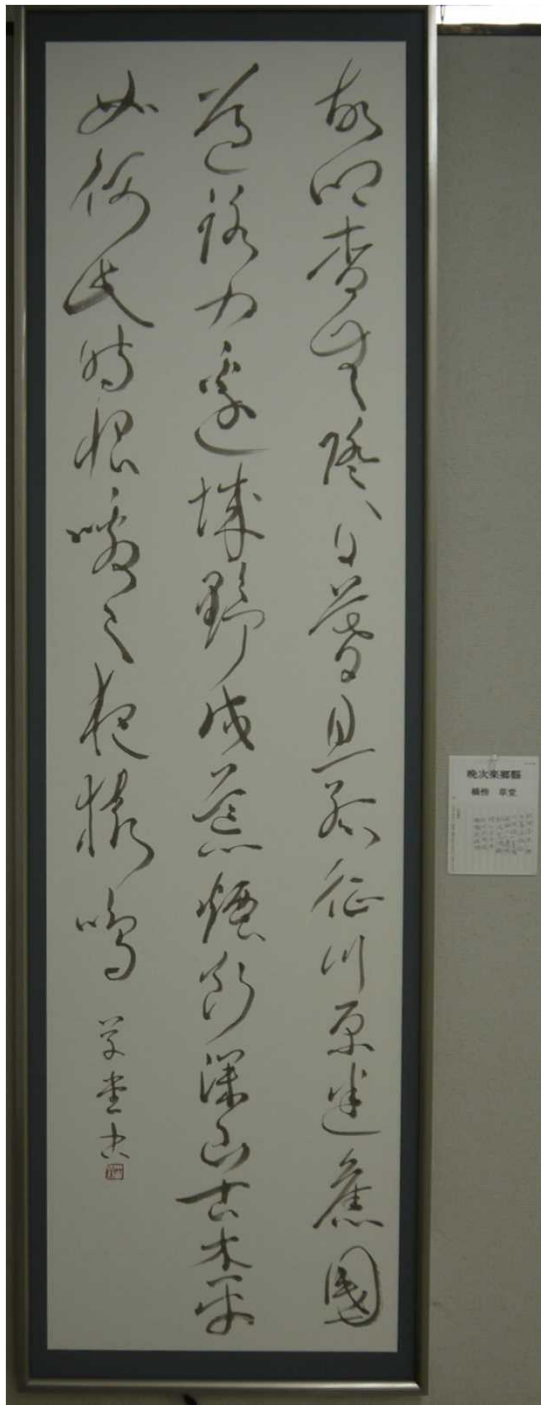 故郷杳無際日暮且孤征川原迷舊國
道路入邊城野戍荒煙斷深山古木平
如何此時恨噭々夜猿鳴 草堂書
晩次樂郷縣
草堂